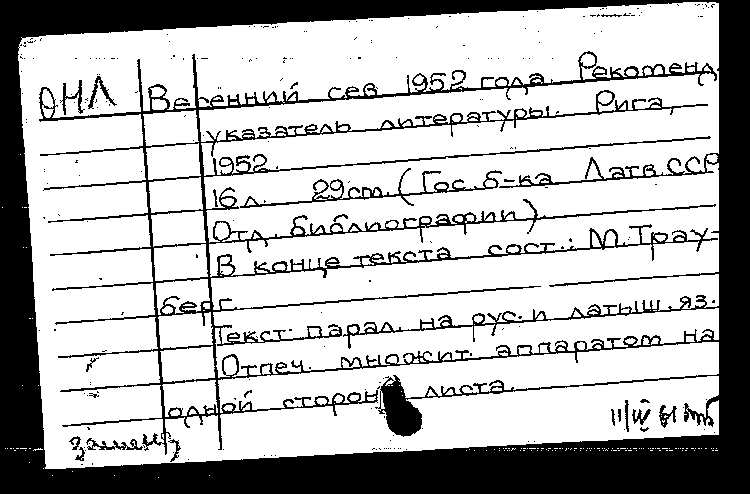 ОНЛ Весенний сев 1952 года. Рекоменд.
указатель литературы. Рига,
1952.
16 л. 29 cm. (Гос. б-ка Латв. ССР
Отд. библиографии).
В конце текста сост.: М. Трау-
берг.
Текст парал. на рус. и латыш. яз.
Отпеч. множит. аппаратом на
одной сторон листа.